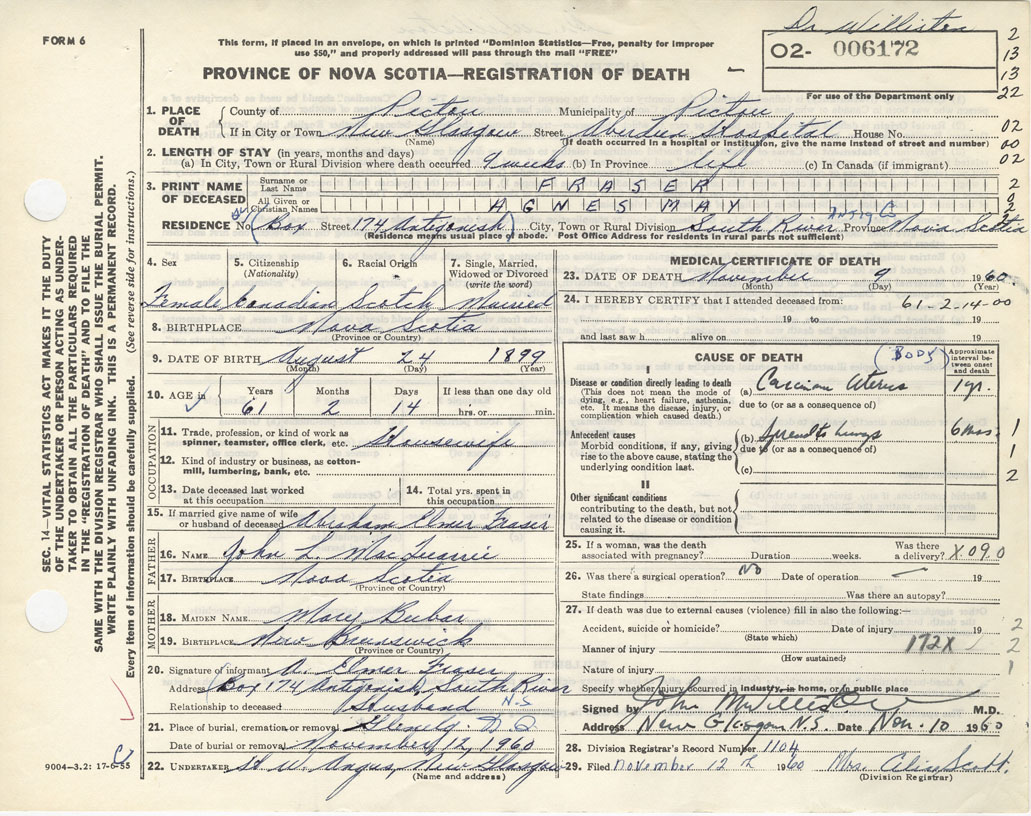 FORM 6
This form, if placed in an envelope, on which is printed "Dominion Statistics—Free, penalty for improper
use $50," and properly addressed will pass through the mail "FREE"
Dr Williston
O2- 006172
For use of the Department only
PROVINCE OF NOVA SCOTIA—REGISTRATION OF DEATH
2
13
13
22
02
00
02
2
0
2
2
SEC. 14—VITAL STATISTICS ACT MAKES IT THE DUTY
OF THE UNDERTAKER OR PERSON ACTING AS UNDER-
TAKER TO OBTAIN ALL THE PARTICULARS REQUIRED
IN THE "REGISTRATION OF DEATH" AND TO FILE THE
SAME WITH THE DIVISION REGISTRAR WHO SHALL ISSUE THE BURIAL PERMIT.
WRITE PLAINLY WITH UNFADING INK. THIS IS A PERMANENT RECORD.
Every item of information should be carefully supplied. (See reverse side for instructions.)
1. PLACE OF DEATH
County of Pictou Municipality of Pictou
If in City or Town New Glasgow Street Aberdeen Hospital House No.
(Name) (If death occurred in a hospital or institution, give the name instead of street and number)
2. LENGTH OF STAY (in years, months and days)
(a) In City, Town or Rural Division where death occurred 9 weeks (b) In Province life (c) In Canada (if immigrant)
3. PRINT NAME OF DECEASED
Surname or Last Name FRASER
All Given or Christian Names AGNES MAY
RESIDENCE No. (Box Street 174 Antigonish) City, Town or Rural Division South River Antig Co Province Nova Scotia
(Residence means usual place of abode. Post Office Address for residents in rural parts not sufficient)
4. Sex 5. Citizenship (Nationality) 6. Racial Origin 7. Single, Married, Widowed or Divorced (write the word)
Female Canadian Scotch Married
8. BIRTHPLACE Nova Scotia
(Province or Country)
9. DATE OF BIRTH August 24 1899
(Month) (Day) (Year)
10. AGE in Years Months Days If less than one day old
61 2 14 hrs. or min.
OCCUPATION
11. Trade, profession, or kind of work as spinner, teamster, office clerk, etc. Housewife
12. Kind of industry or business, as cotton-mill, lumbering, bank, etc.
13. Date deceased last worked at this occupation
14. Total yrs. spent in this occupation
15. If married give name of wife or husband of deceased Abraham Elmer Fraser
FATHER
16. NAME John L. MacQuarrie
17. BIRTHPLACE Nova Scotia
(Province or Country)
MOTHER
18. MAIDEN NAME Mary Bubar
19. BIRTHPLACE New Brunswick
(Province or Country)
20. Signature of informant A. Elmer Fraser
Address Box 174 Antigonish, South River
N.S
Relationship to deceased Husband
21. Place of burial, cremation or removal
Date of burial or removal November 12, 1960
22. UNDERTAKER Angus, New Glasgow
(Name and address)
9004-3.2: 17-6-55
MEDICAL CERTIFICATE OF DEATH
23. DATE OF DEATH November 9 1960
(Month) (Day) (Year)
24. I HEREBY CERTIFY that I attended deceased from: 61-2-14-00
19 to 19
and last saw h alive on 19
CAUSE OF DEATH
(BODY)
Approximate interval between onset and death
I
Disease or condition directly leading to death
(This does not mean the mode of dying, e.g., heart failure, asthenia, etc. It means the disease, injury, or complication which caused death.)
(a) Carcinoma Uterus 1 yr.
due to (or as a consequence of)
Antecedent causes
Morbid conditions, if any, giving rise to the above cause, stating the underlying condition last.
(b) Spread to Lungs 6 mos.
due to (or as a consequence of)
(c)
1
1
2
II
Other significant conditions
contributing to the death, but not related to the disease or condition causing it.
25. If a woman, was the death associated with pregnancy? Duration weeks. Was there a delivery? X090
26. Was there a surgical operation? NO Date of operation — 19
State findings Was there an autopsy?
27. If death was due to external causes (violence) fill in also the following:—
Accident, suicide or homicide? Date of injury 19
(State which)
2
Manner of injury 172X
(How sustained)
2
Nature of injury
1
Specify whether injury occurred in industry, in home, or in public place
Signed by John M. Williston M.D.
Address New Glasgow N.S. Date Nov. 10 1960
28. Division Registrar's Record Number 1104
29. Filed November 12 1960 Mrs. Alice Scott.
(Division Registrar)